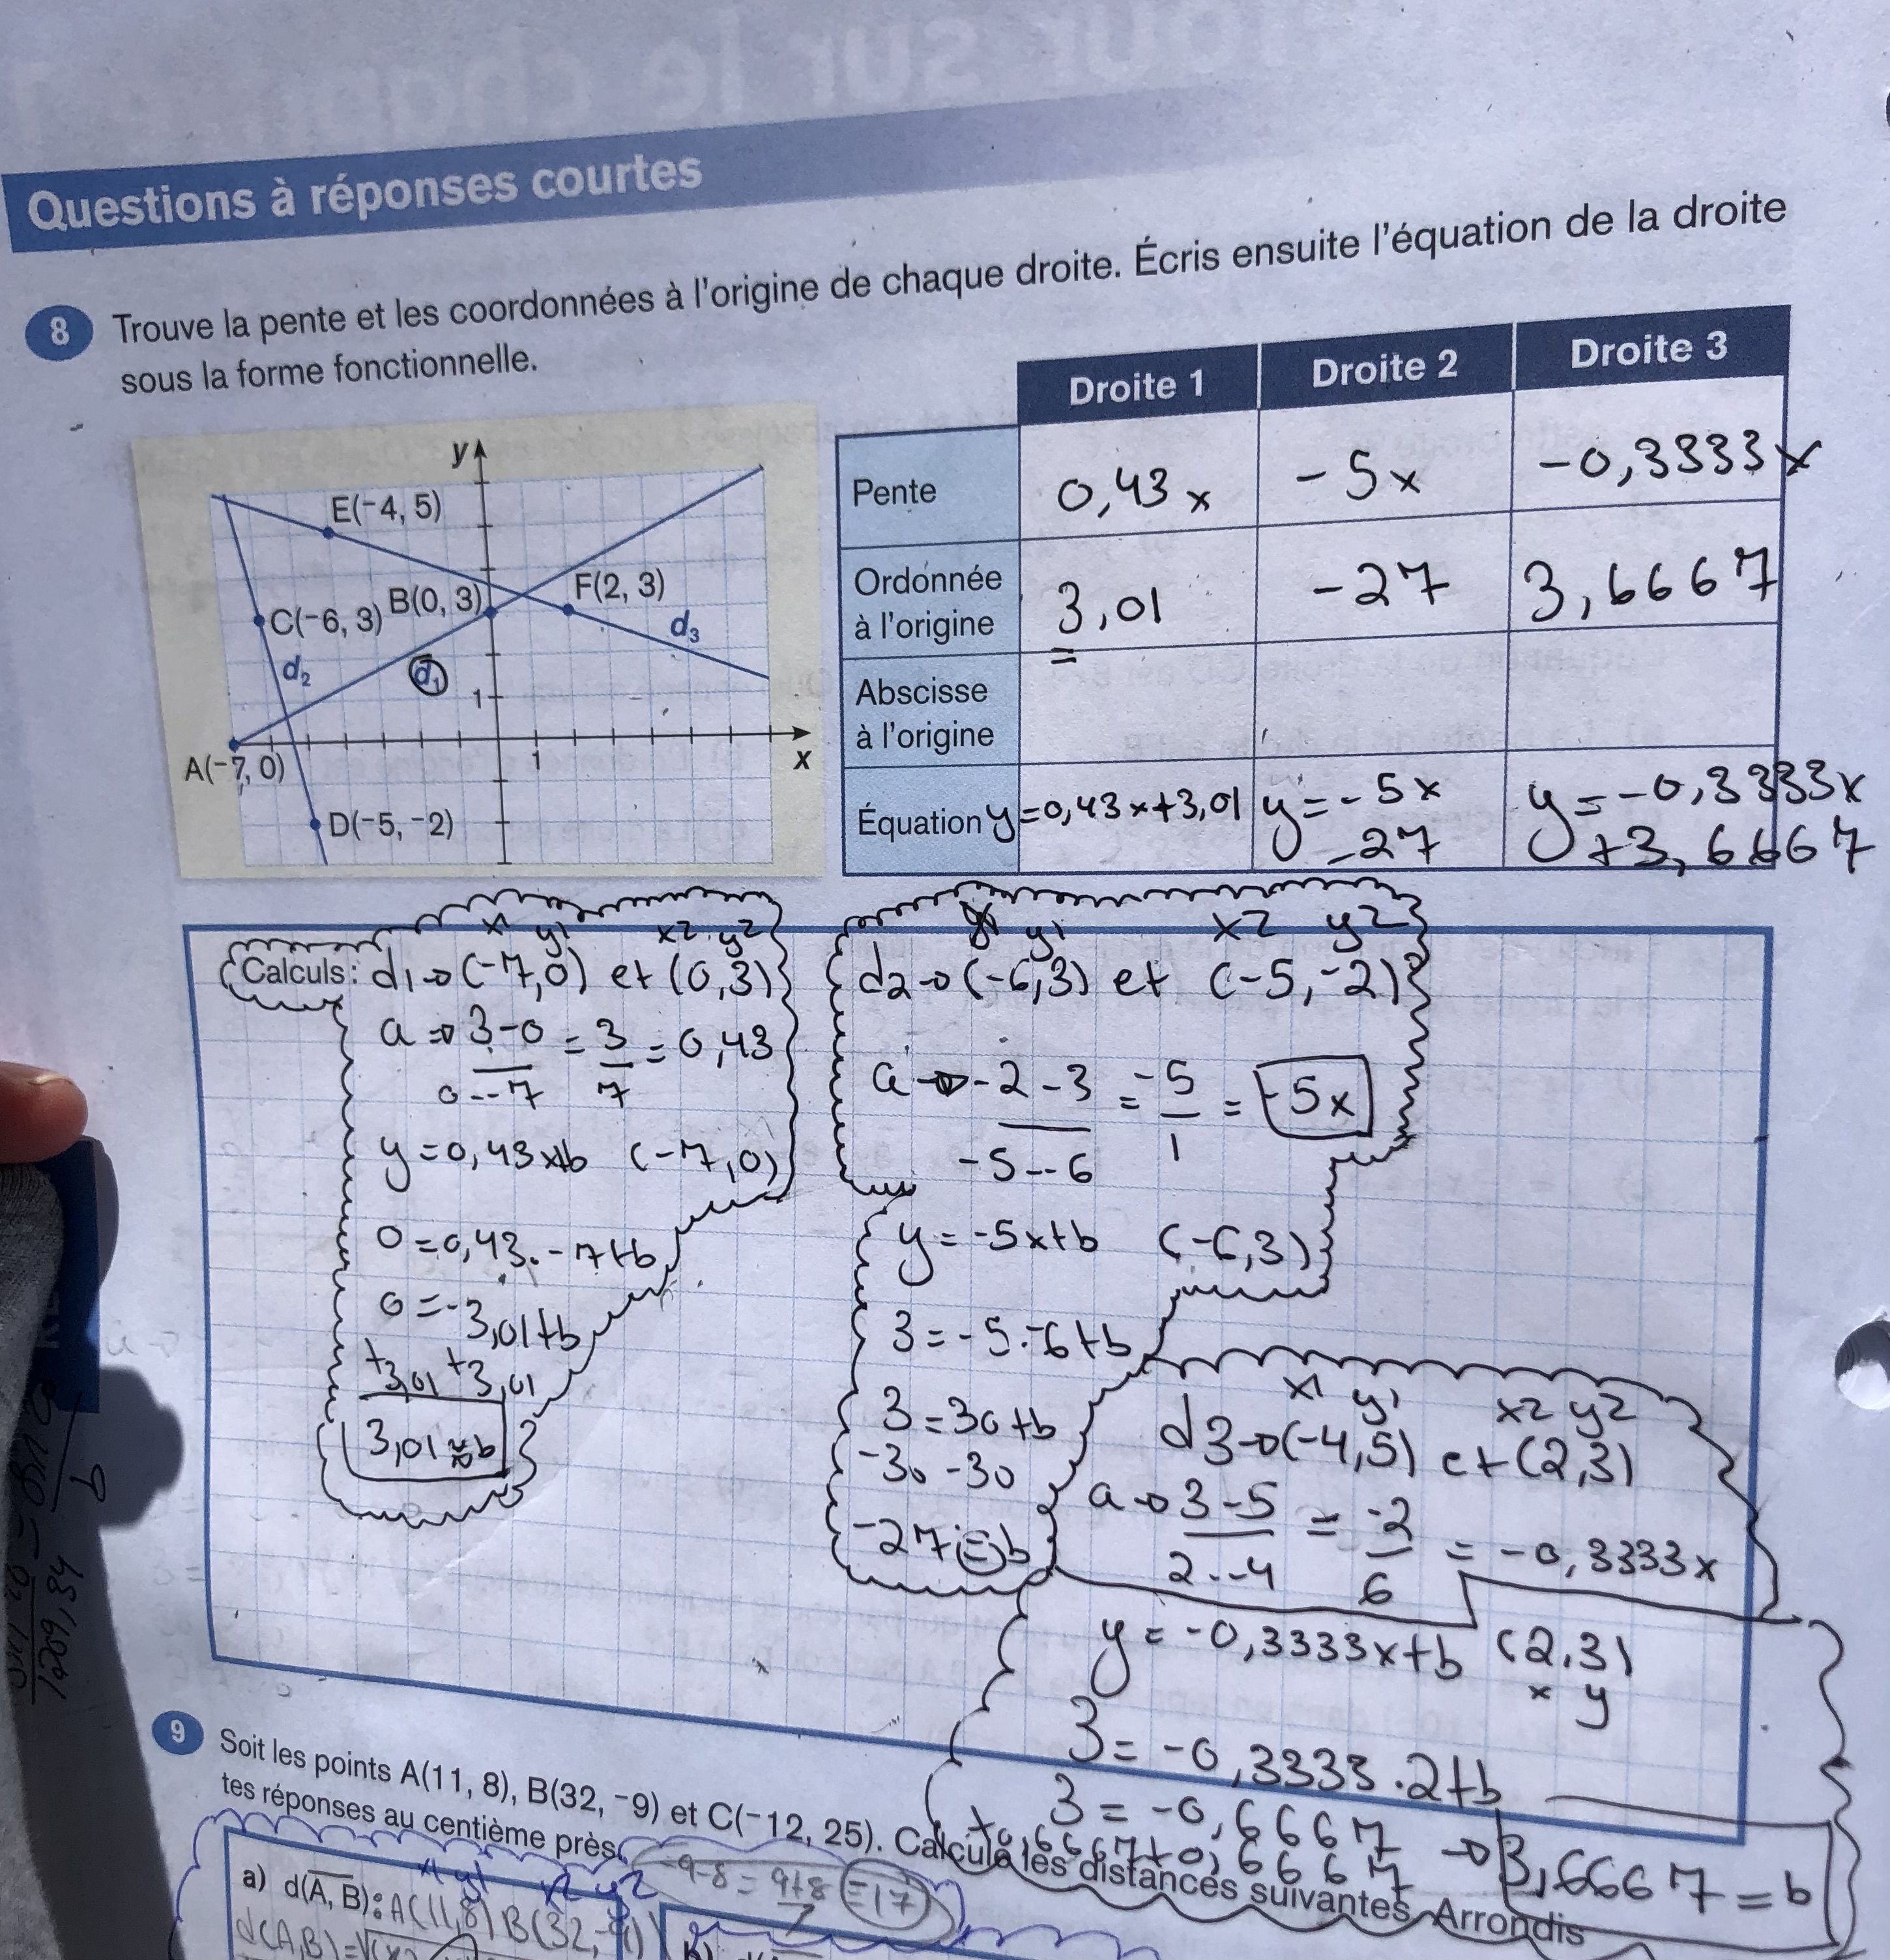 Questions à réponses courtes
8 Trouve la pente et les coordonnées à l'origine de chaque droite. Écris ensuite l'équation de la droite
sous la forme fonctionnelle.
y
E(−4, 5)
C(−6, 3) B(0, 3) F(2, 3)
d3
d2 d1
1
A(−7, 0) 1 x
D(−5, −2)
Droite 1 Droite 2 Droite 3
Pente 0,43x -5x -0,3333x
Ordonnée
à l'origine 3,01 -27 3,6667
=
Abscisse
à l'origine
Équation y=0,43x+3,01 y=-5x -27 y=-0,3333x +3,6667
x1 y1 x2 y2
Calculs: d1→(-7,0) et (0,3)
a⇒ 3-0 / 0--7 = 3/7 = 0,43
y=0,43x+b (-7,0)
0=0,43.-7+b
0=-3,01+b
+3,01 +3,01
3,01≈b
y1 x2 y2
d2→(-6,3) et (-5,-2)
a→ -2-3 / -5--6 = -5/1 = -5x
y=-5x+b (-6,3)
3=-5.-6+b
3=30+b
-30 -30
-27=b
x1 y1 x2 y2
d3→(-4,5) et (2,3)
a→ 3-5 / 2--4 = -2/6 = -0,3333x
y=-0,3333x+b (2,3)
x y
3=-0,3333.2+b
3=-0,6667
+0,6667+0,6667 → 3,6667=b
9 Soit les points A(11, 8), B(32, −9) et C(−12, 25). Calcule les distances suivantes. Arrondis
tes réponses au centième près.
-9-8=9+8=17
x1 y1 x2 y2
a) d(A, B): A(11,8) B(32,-9)
d(A,B)=